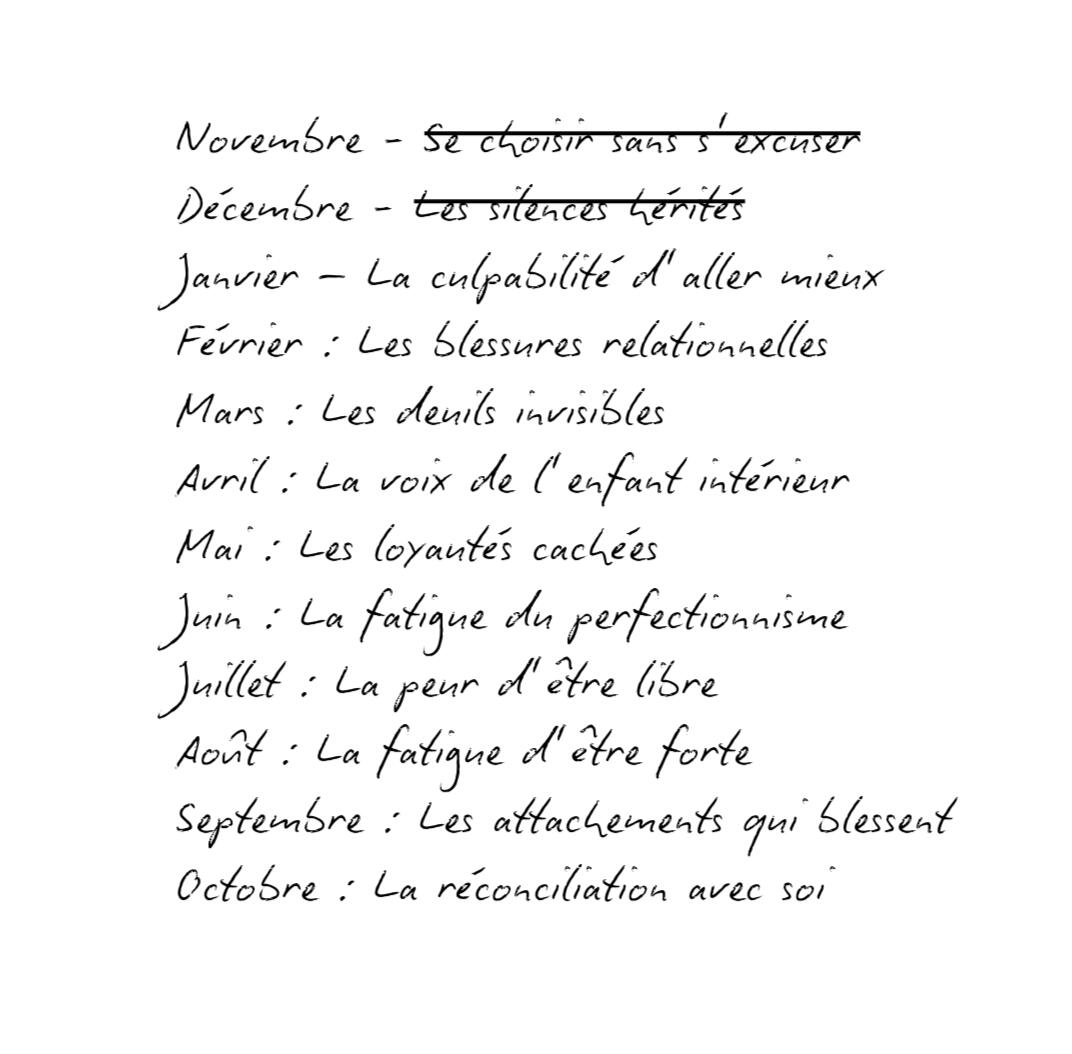 Novembre - Se choisir sans s'excuser
Décembre - Les silences hérités
Janvier – La culpabilité d'aller mieux
Février : Les blessures relationnelles
Mars : Les deuils invisibles
Avril : La voix de l'enfant intérieur
Mai : Les loyautés cachées
Juin : La fatigue du perfectionnisme
Juillet : La peur d'être libre
Août : La fatigue d'être forte
Septembre : Les attachements qui blessent
Octobre : La réconciliation avec soi